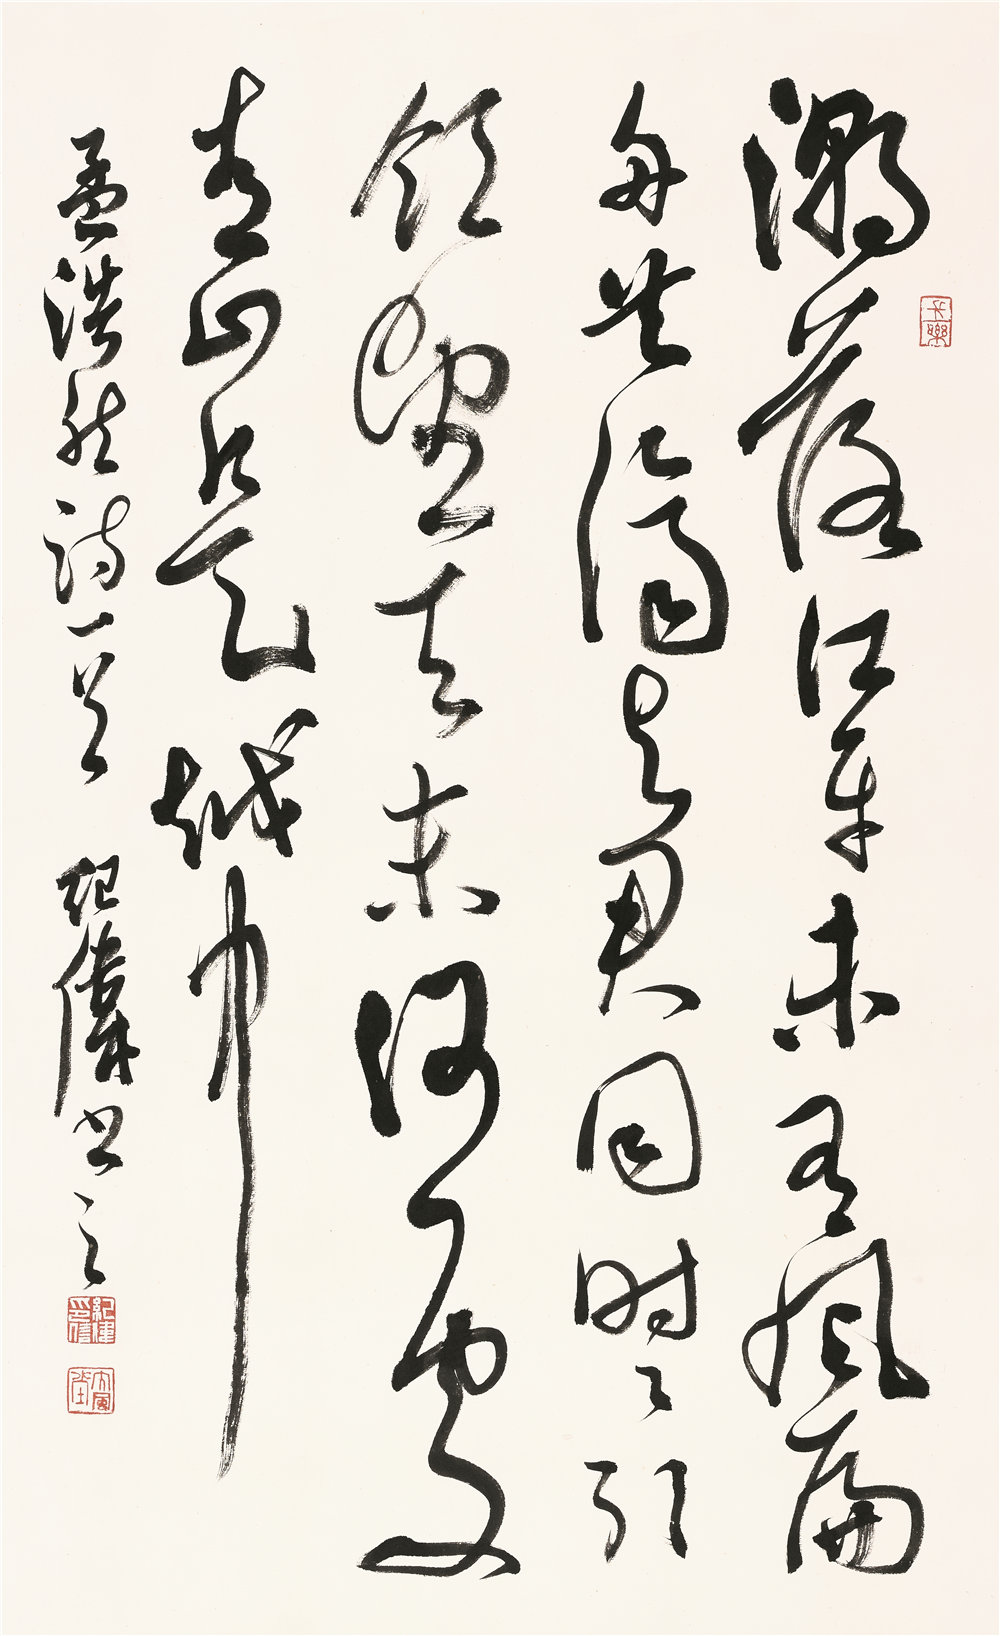 潮落江平未有風扁
舟共濟与君同時〻引
領望天末何處
青山是越中
孟浩然詩一首 紀偉書之
長樂